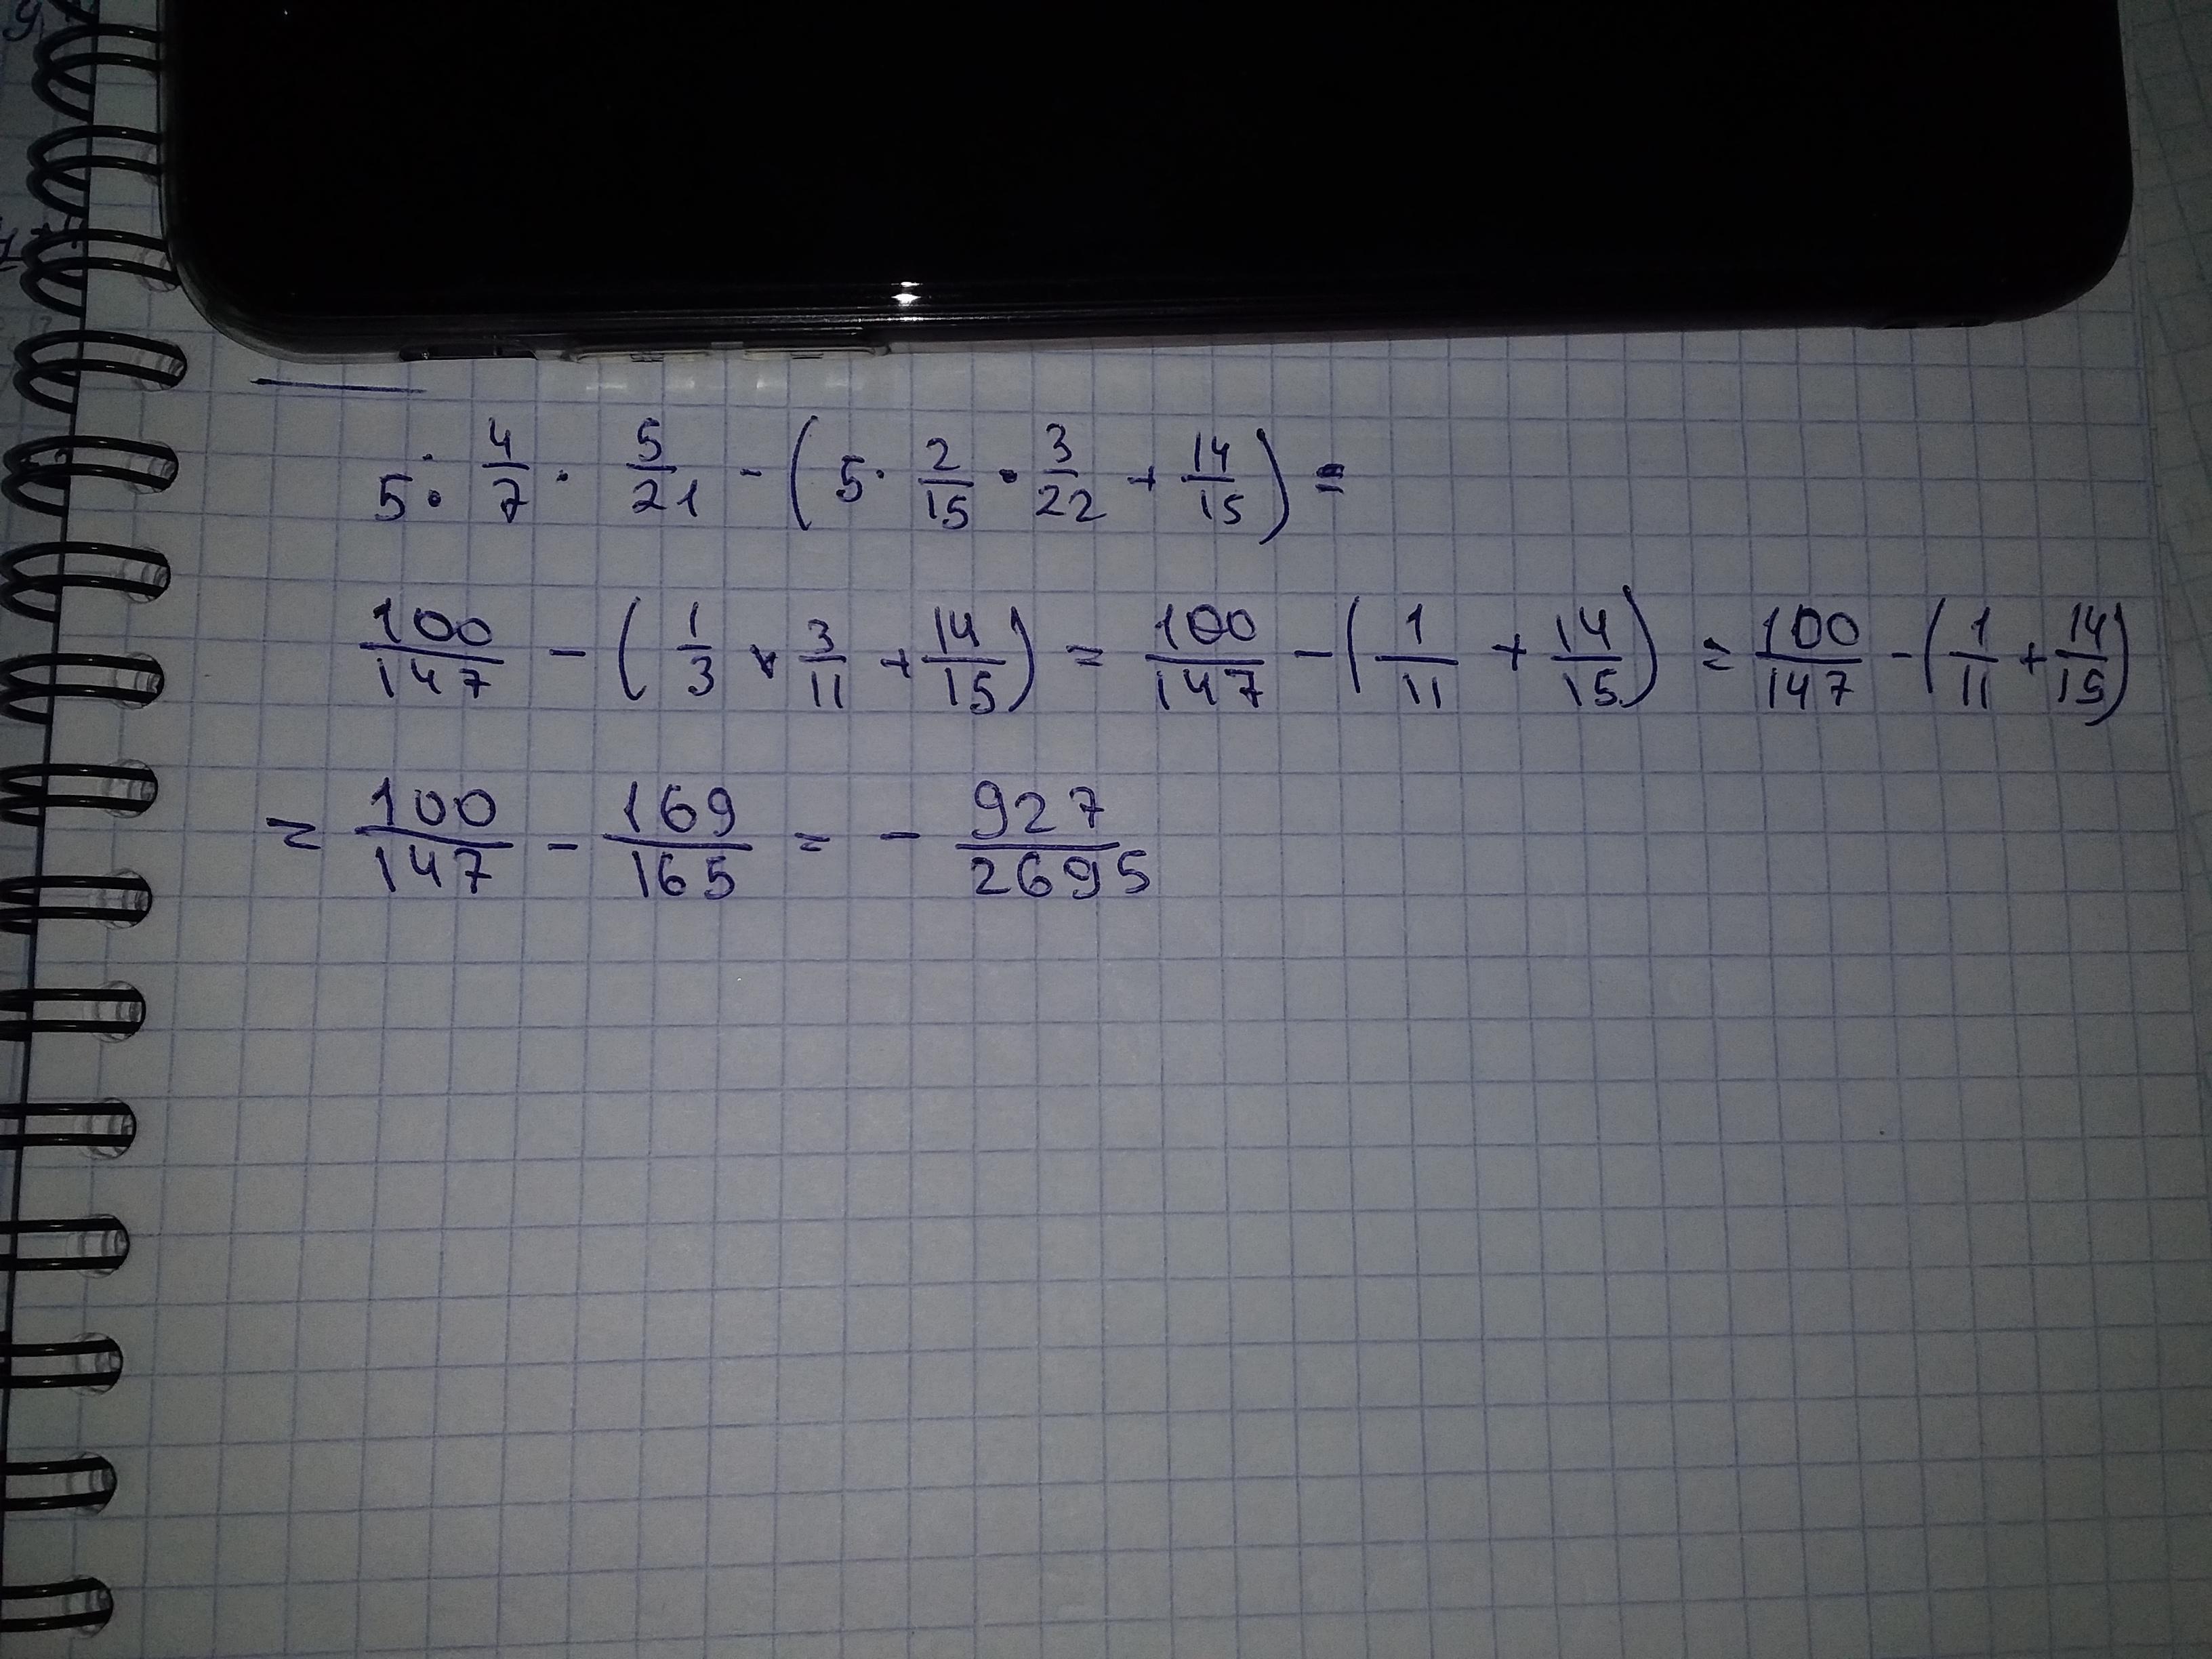 5 · 4/7 · 5/21 - (5 · 2/15 · 3/22 + 14/15) =
100/147 - (1/3 × 3/11 + 14/15) = 100/147 - (1/11 + 14/15) = 100/147 - (1/11 + 14/15)
= 100/147 - 169/165 = - 927/2695